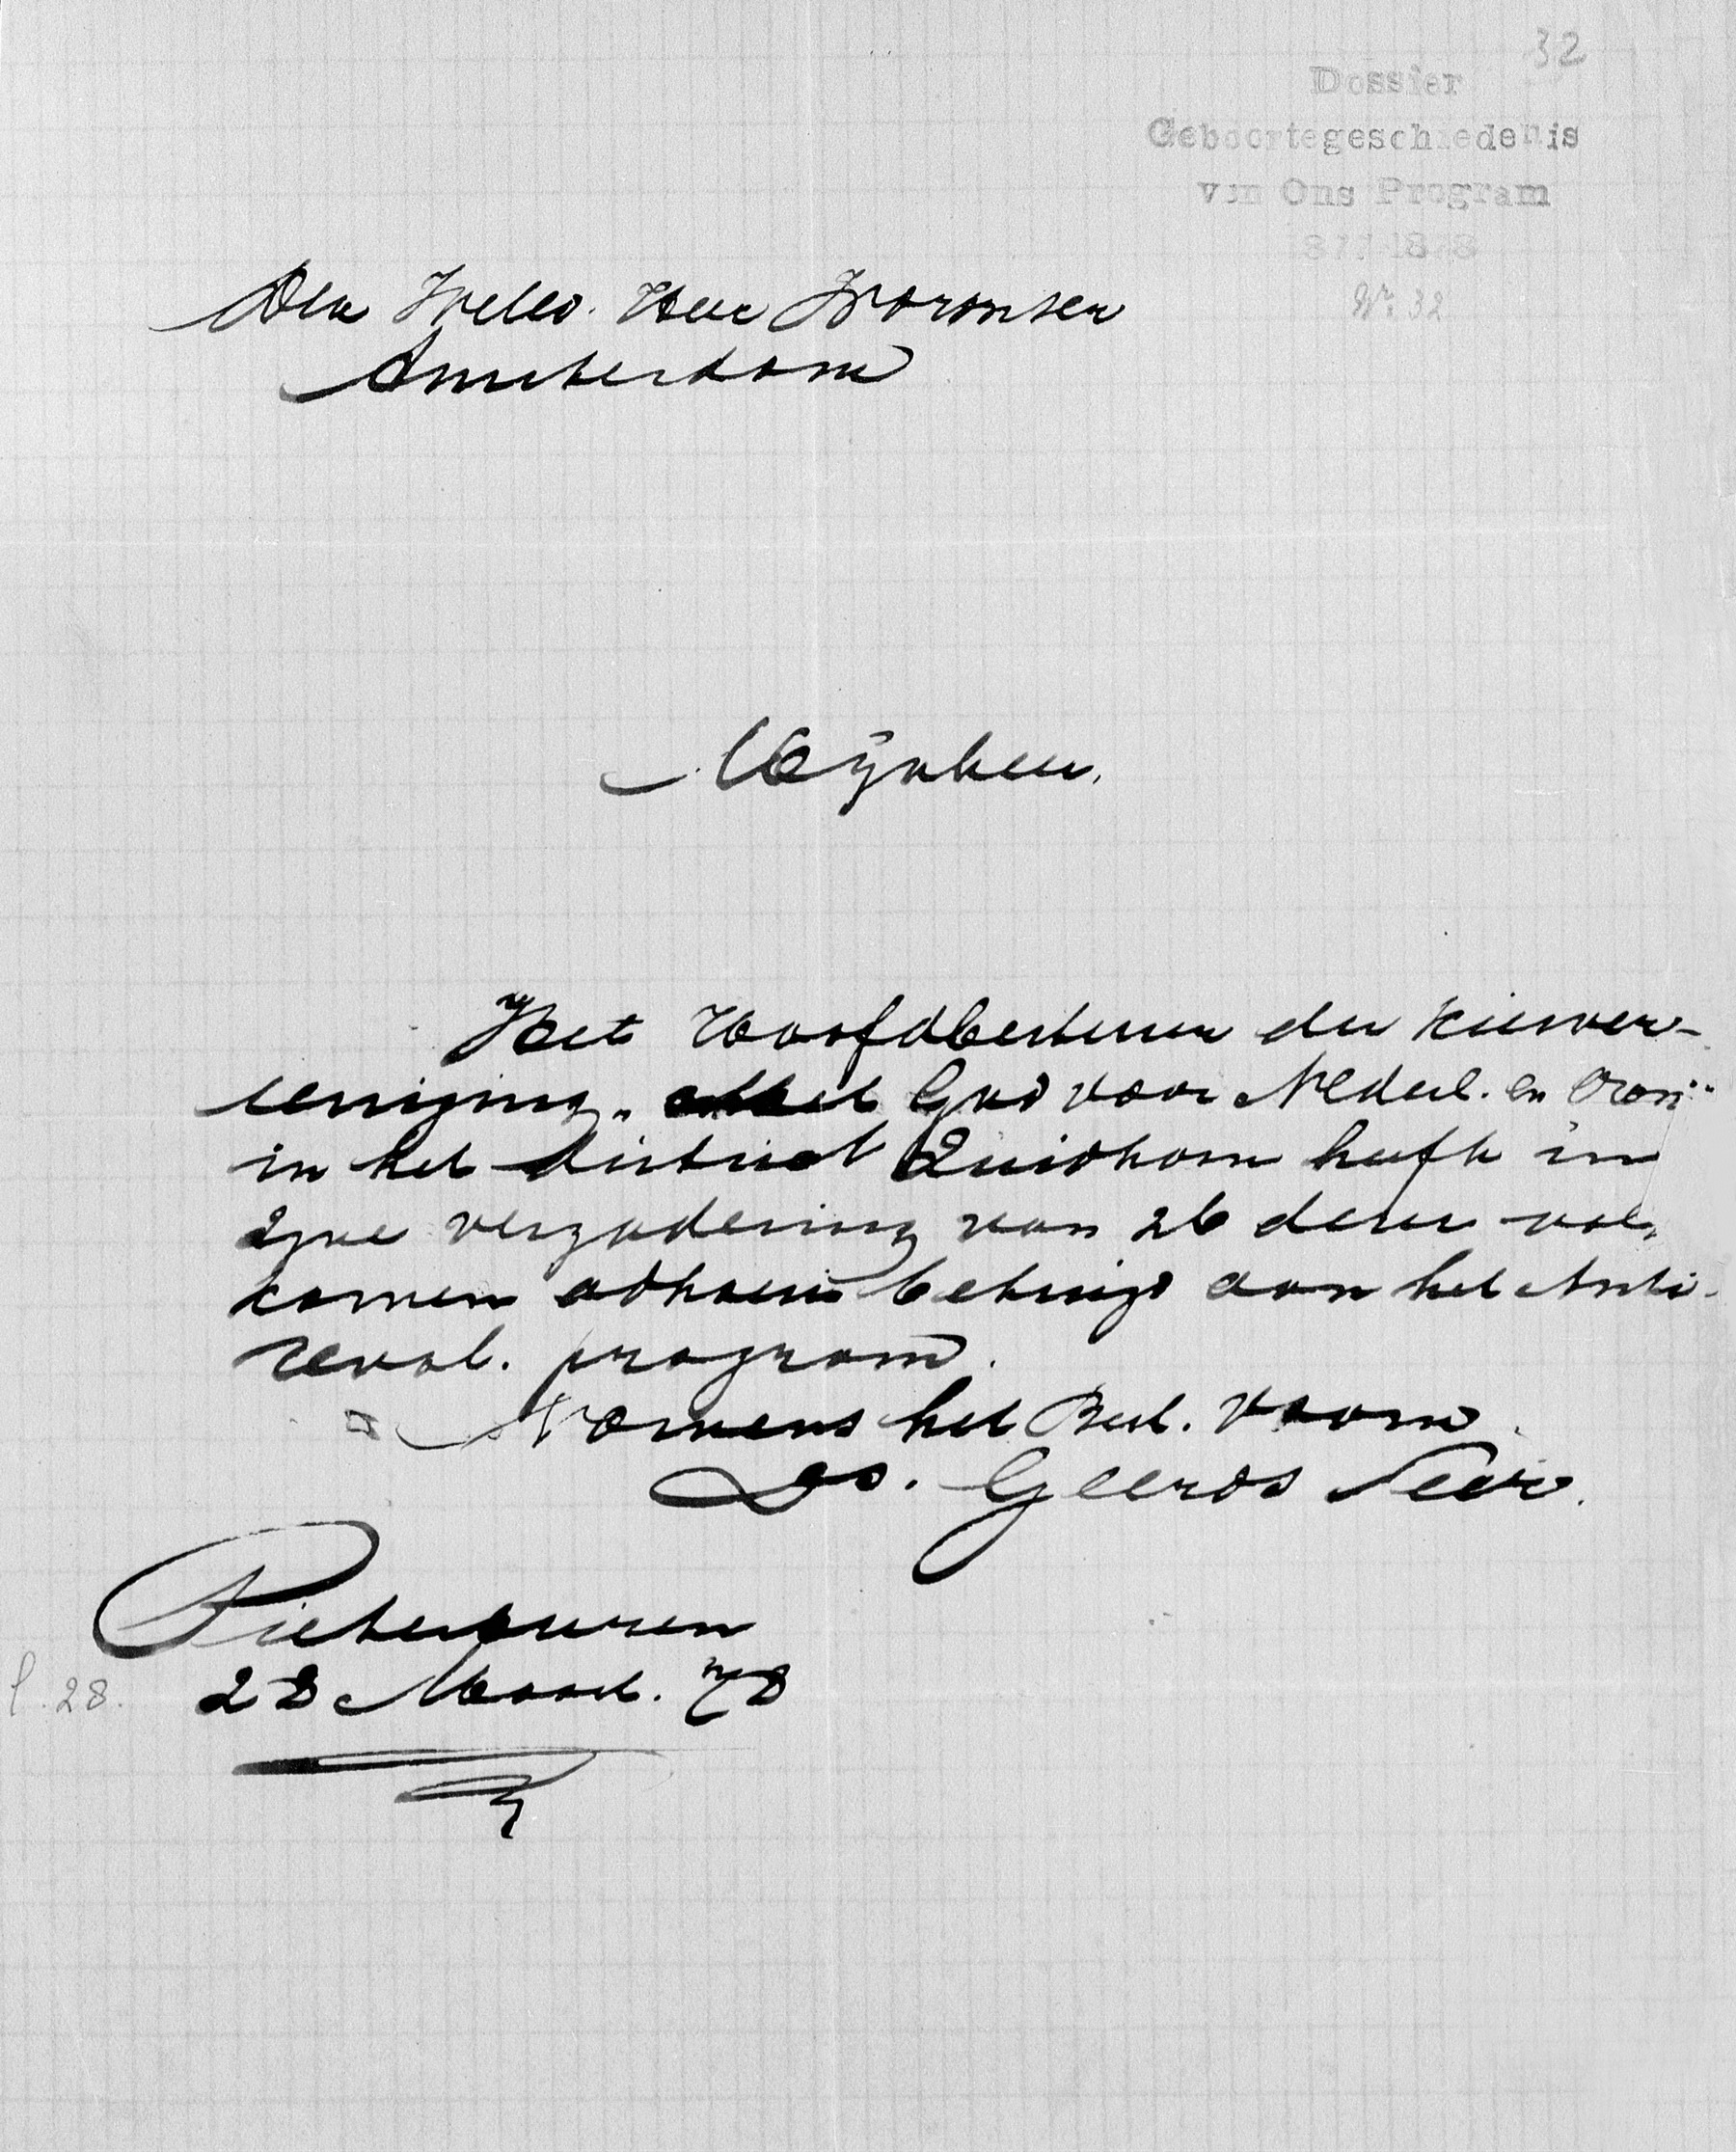 32
Dossier
Geboortegeschiedenis
van Ons Program
1877-1878
Nr. 32
Den Weled. Heer Woronsen
Amsterdam
Mijnheer,
Het Hoofdbestuur der Kiesver-
eeniging „ God voor Nederl. en Oran:"
in het district Zuidhorn heeft in
zijne vergadering van 26 dezer vol-
komen adhaesie betuigd aan het Anti-
revol. program.
Namens het Best. voorn.
Ds. Geerds Secr.
Pieterburen
28 Maart. 78
l. 28.